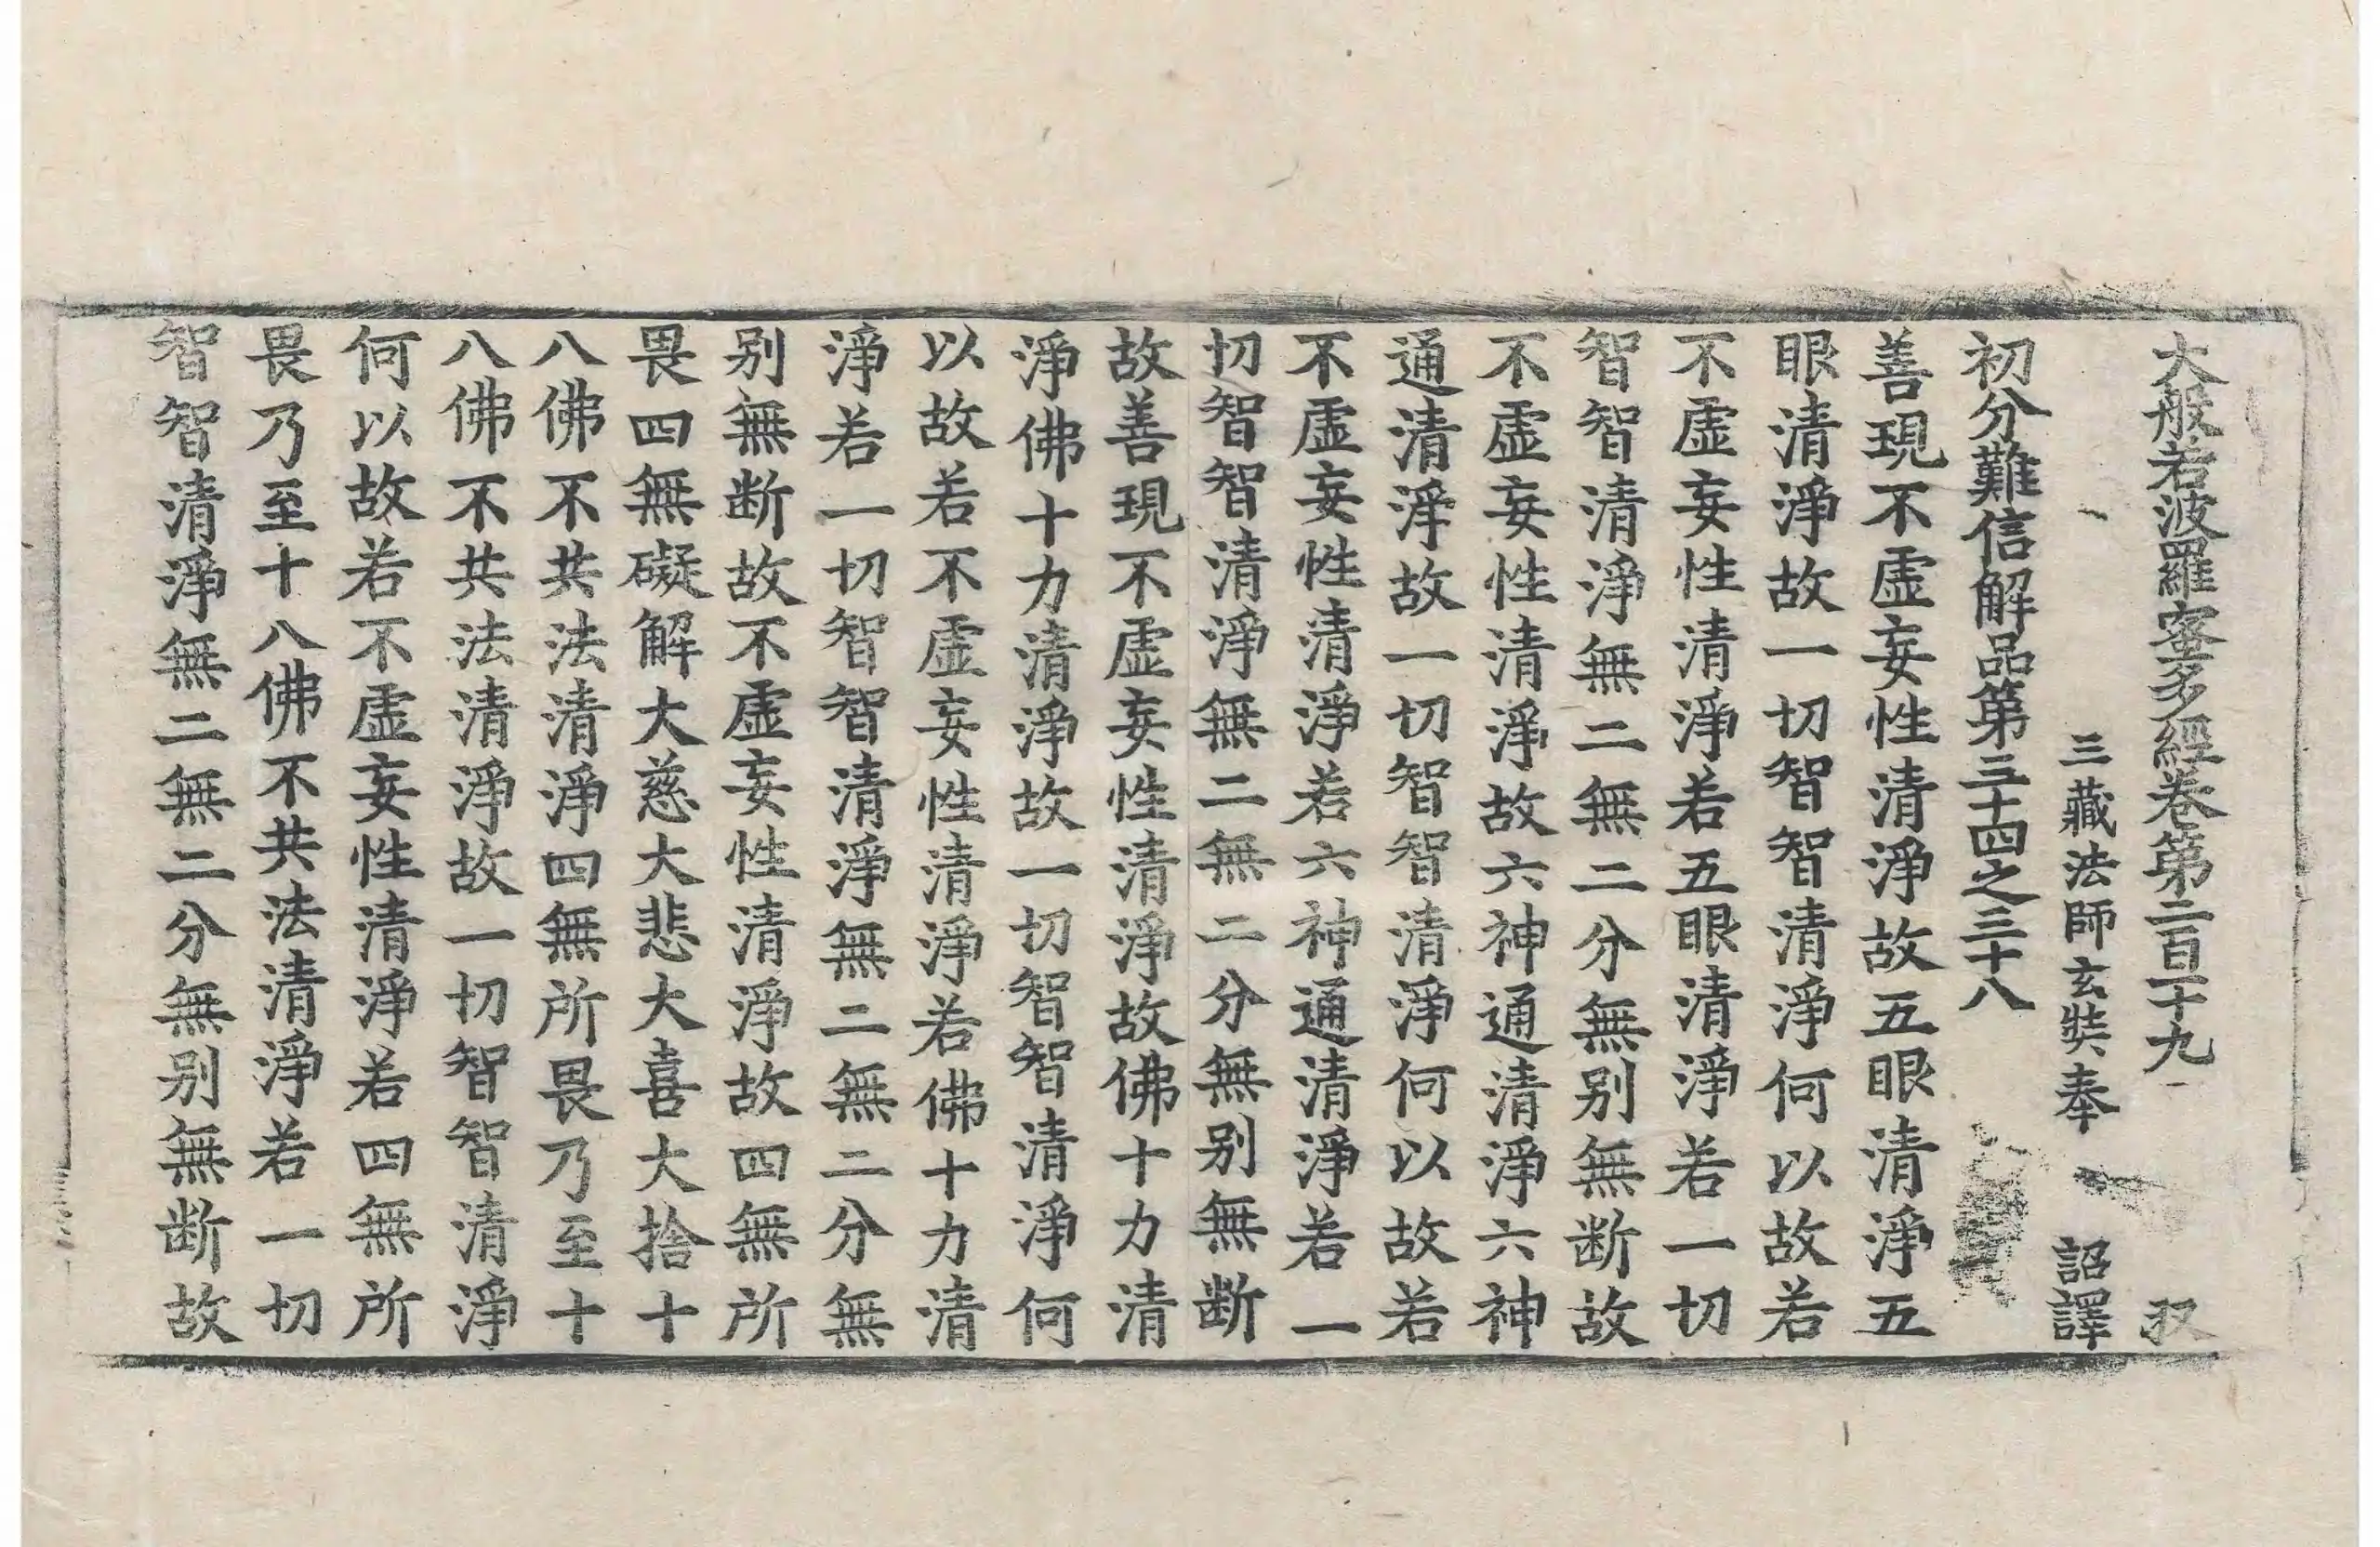 大般若波羅蜜多經卷第二百一十九 㪅
三藏法師玄奘奉 詔譯
初分難信解品第三十四之三十八
善現不虛妄性清淨故五眼清淨五
眼清淨故一切智智清淨何以故若
不虛妄性清淨若五眼清淨若一切
智智清淨無二無二分無別無斷故
不虛妄性清淨故六神通清淨六神
通清淨故一切智智清淨何以故若
不虛妄性清淨若六神通清淨若一
切智智清淨無二無二分無別無斷
故善現不虛妄性清淨故佛十力清
淨佛十力清淨故一切智智清淨何
以故若不虛妄性清淨若佛十力清
淨若一切智智清淨無二無二分無
別無斷故不虛妄性清淨故四無所
畏四無礙解大慈大悲大喜大捨十
八佛不共法清淨四無所畏乃至十
八佛不共法清淨故一切智智清淨
何以故若不虛妄性清淨若四無所
畏乃至十八佛不共法清淨若一切
智智清淨無二無二分無別無斷故